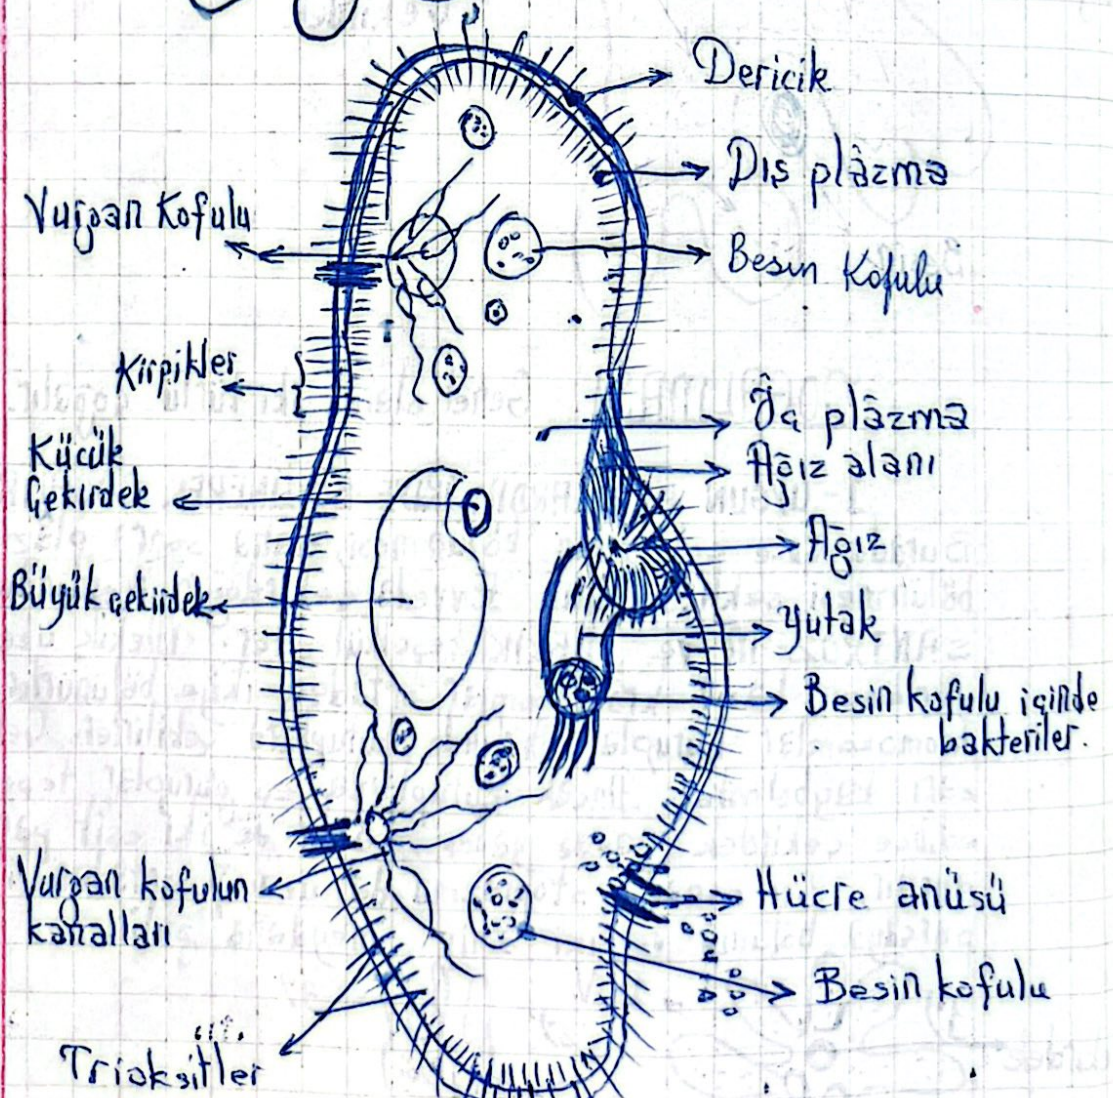 Dericik
Dış plâzma
Vurgan Kofulu
Besin Kofulu
Kirpikler
İç plâzma
Küçük
Çekirdek
Ağız alanı
Ağız
Büyük çekirdek
yutak
Besin kofulu içinde
bakteriler.
Vurgan kofulun
kanalları
Hücre anüsü
Besin kofulu
Trioksitler